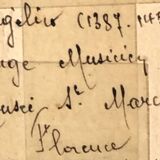 ngélico (1387. 145
nge Musicien
usée St Marc
Florence